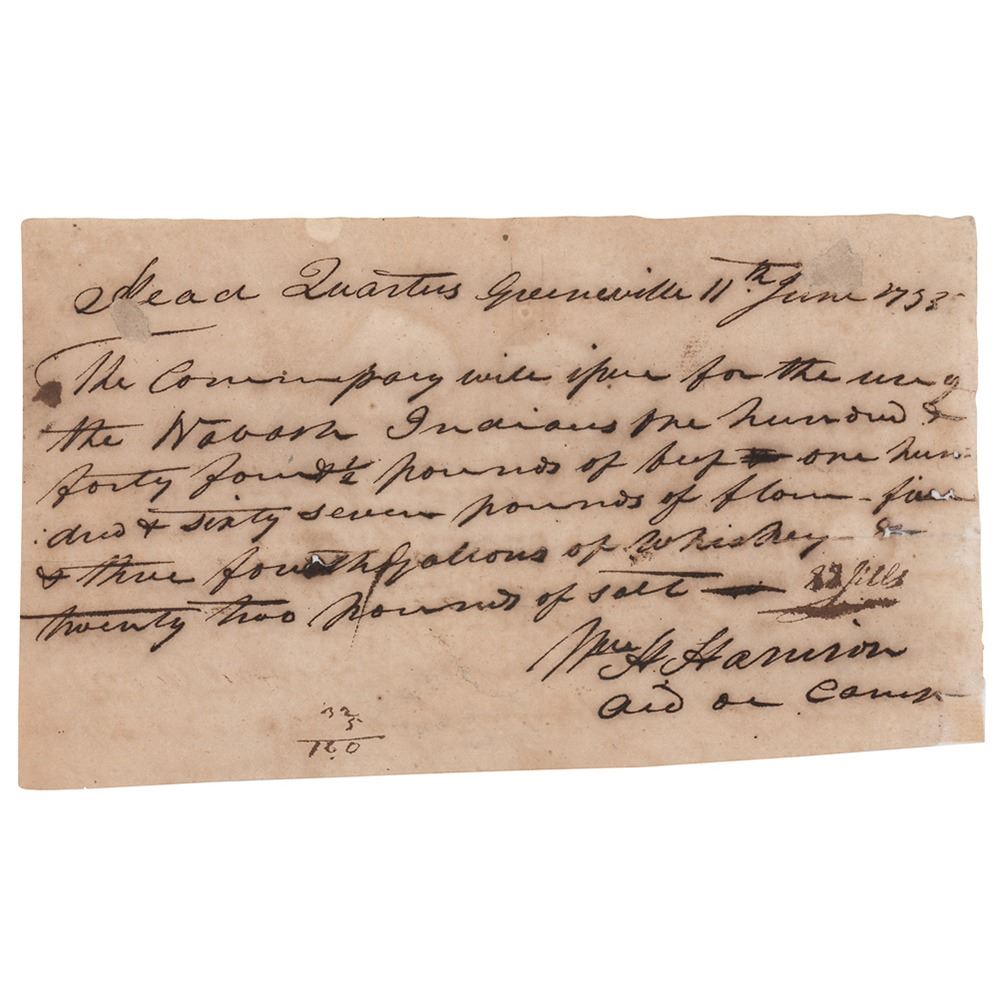 Head Quarters Greeneville 11th June 1795
The Commissary will issue for the use of
the Wabash Indians one hundred &
forty four & ½ pounds of beef one hun-
dred & sixty seven pounds of flour - five
& three fourth gallons of whiskey &
twenty two pounds of salt — 22 Jills
Wm H Harrison
Aid de Camp
32
5
160